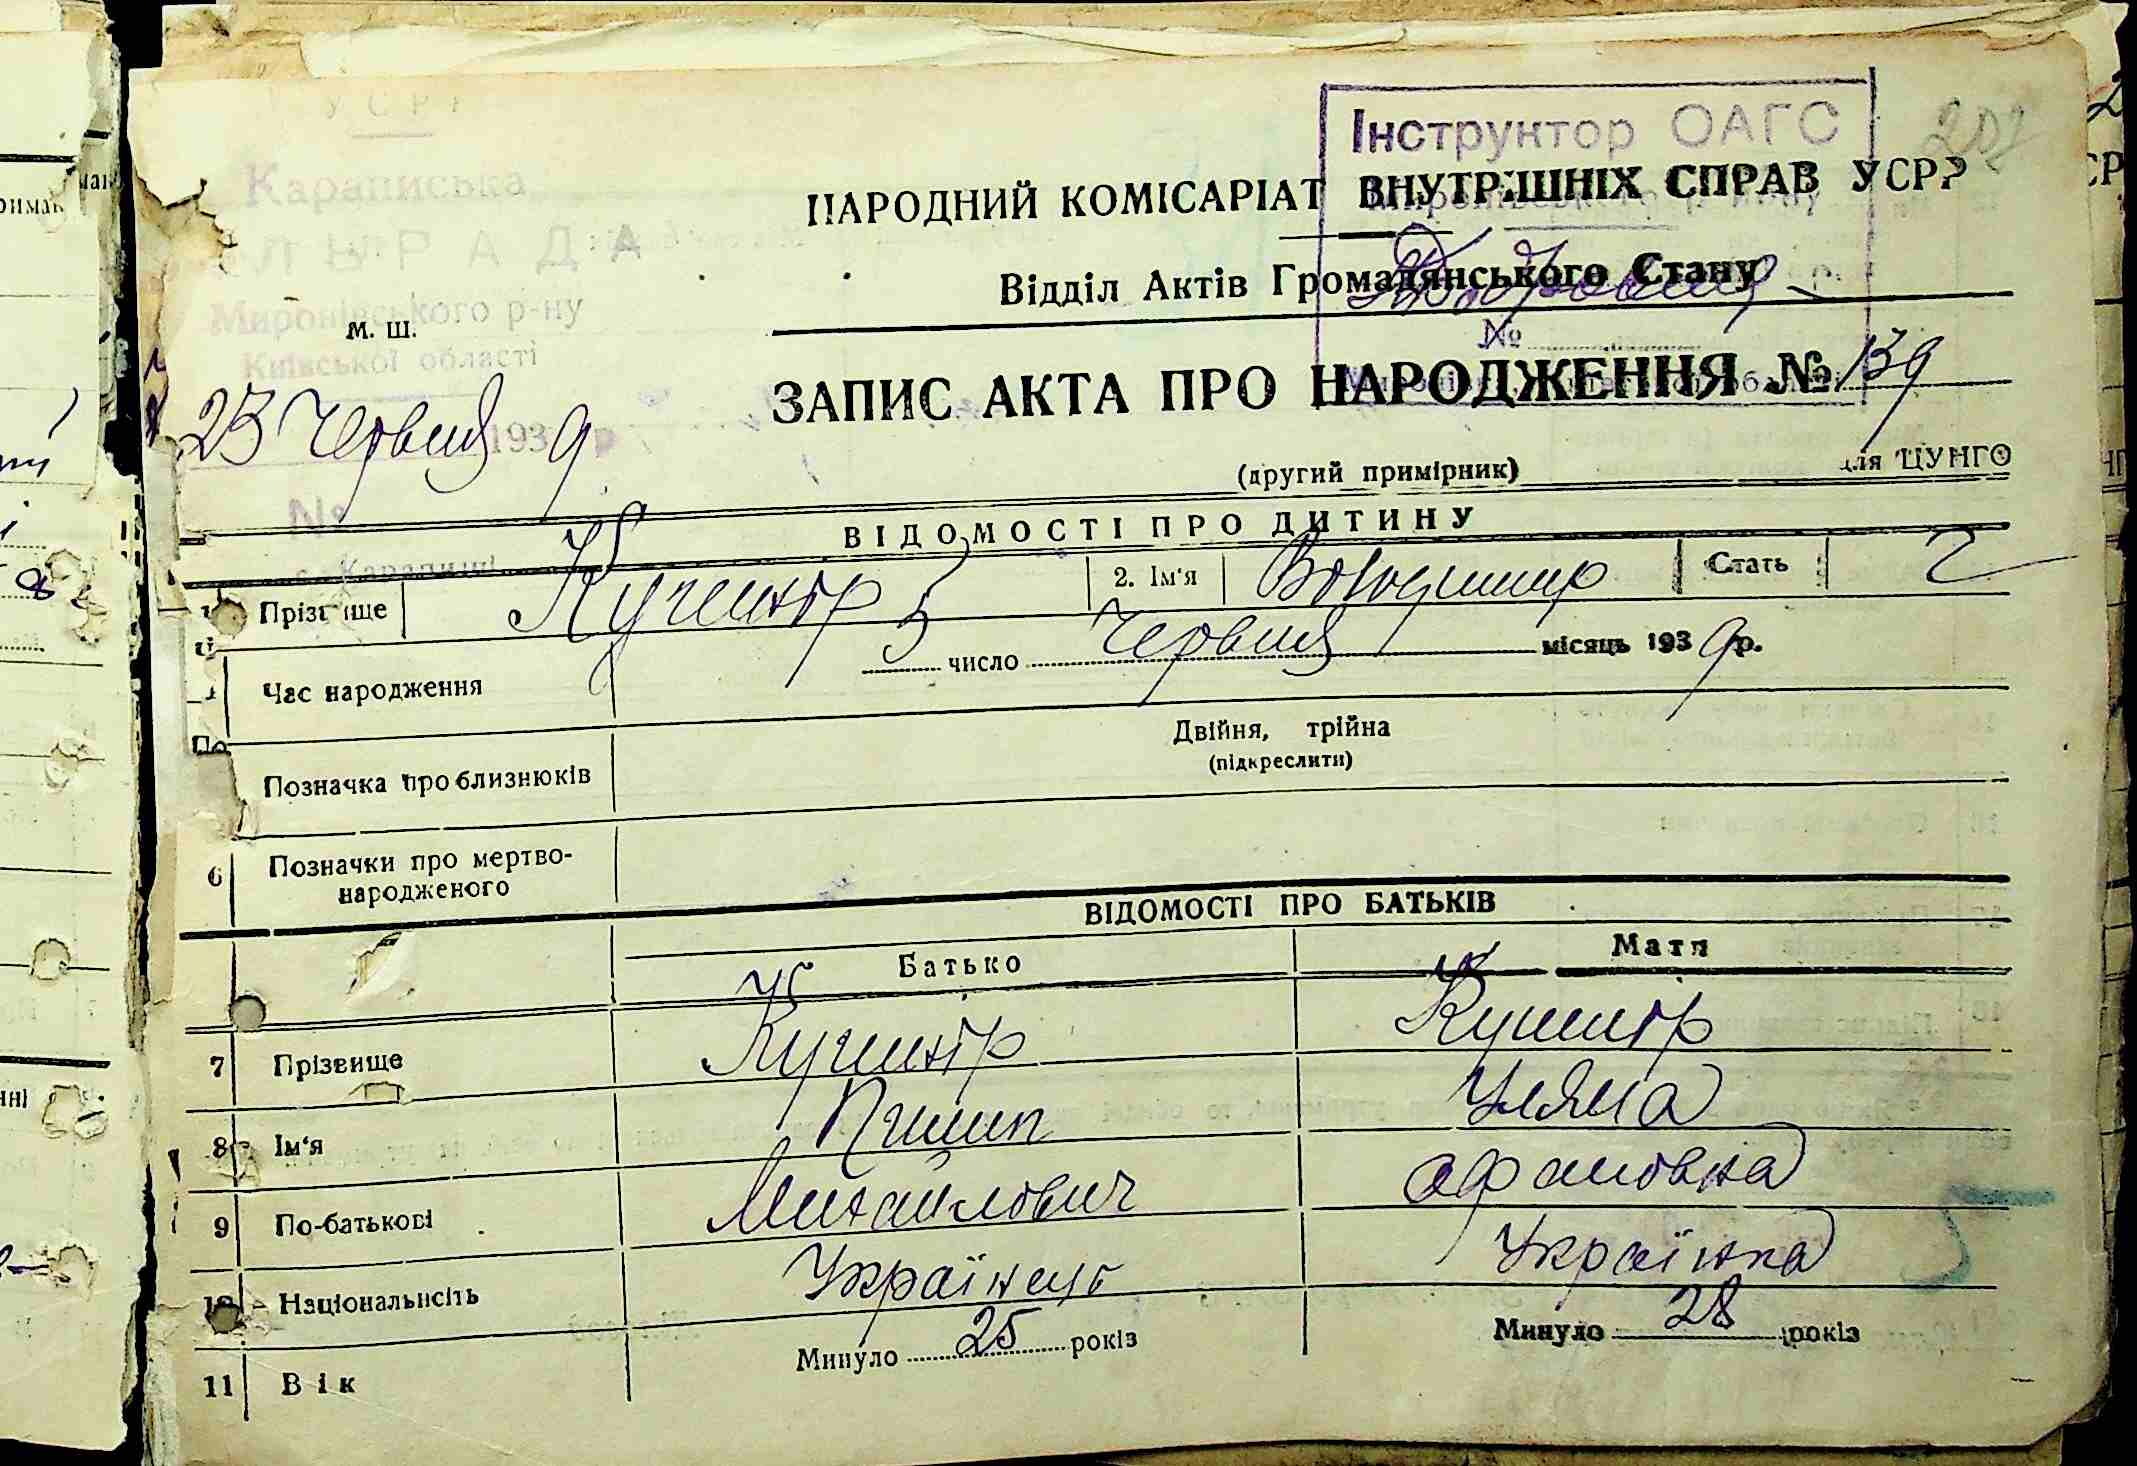 УСРР
Караписька
ЛЬРАДА
Миронівського р-ну
Київської області
Інструктор ОАГС
НАРОДНИЙ КОМІСАРІАТ ВНУТРІШНІХ СПРАВ УСРР
Відділ Актів Громадянського Стану
№
м. ш.
ЗАПИС АКТА ПРО НАРОДЖЕННЯ № 139
23 Червня 1939 р
(другий примірник) для ЦУНГО
№
с. Карапиші
ВІДОМОСТІ ПРО ДИТИНУ
Прізвище Кушнір 2. Ім'я Володимир Стать Ч
Час народження 5 число Червня місяць 1939 р.
Позначка про близнюків Двійня, трійна
(підкреслити)
6 Позначки про мертво-
народженого
ВІДОМОСТІ ПРО БАТЬКІВ
Батько Мати
7 Прізвище Кушнір Кушнір
8 Ім'я Пилип Уляна
9 По-батькові Михайлович
10 Національність Українець Українка
11 Вік Минуло 25 років Минуло 28 років